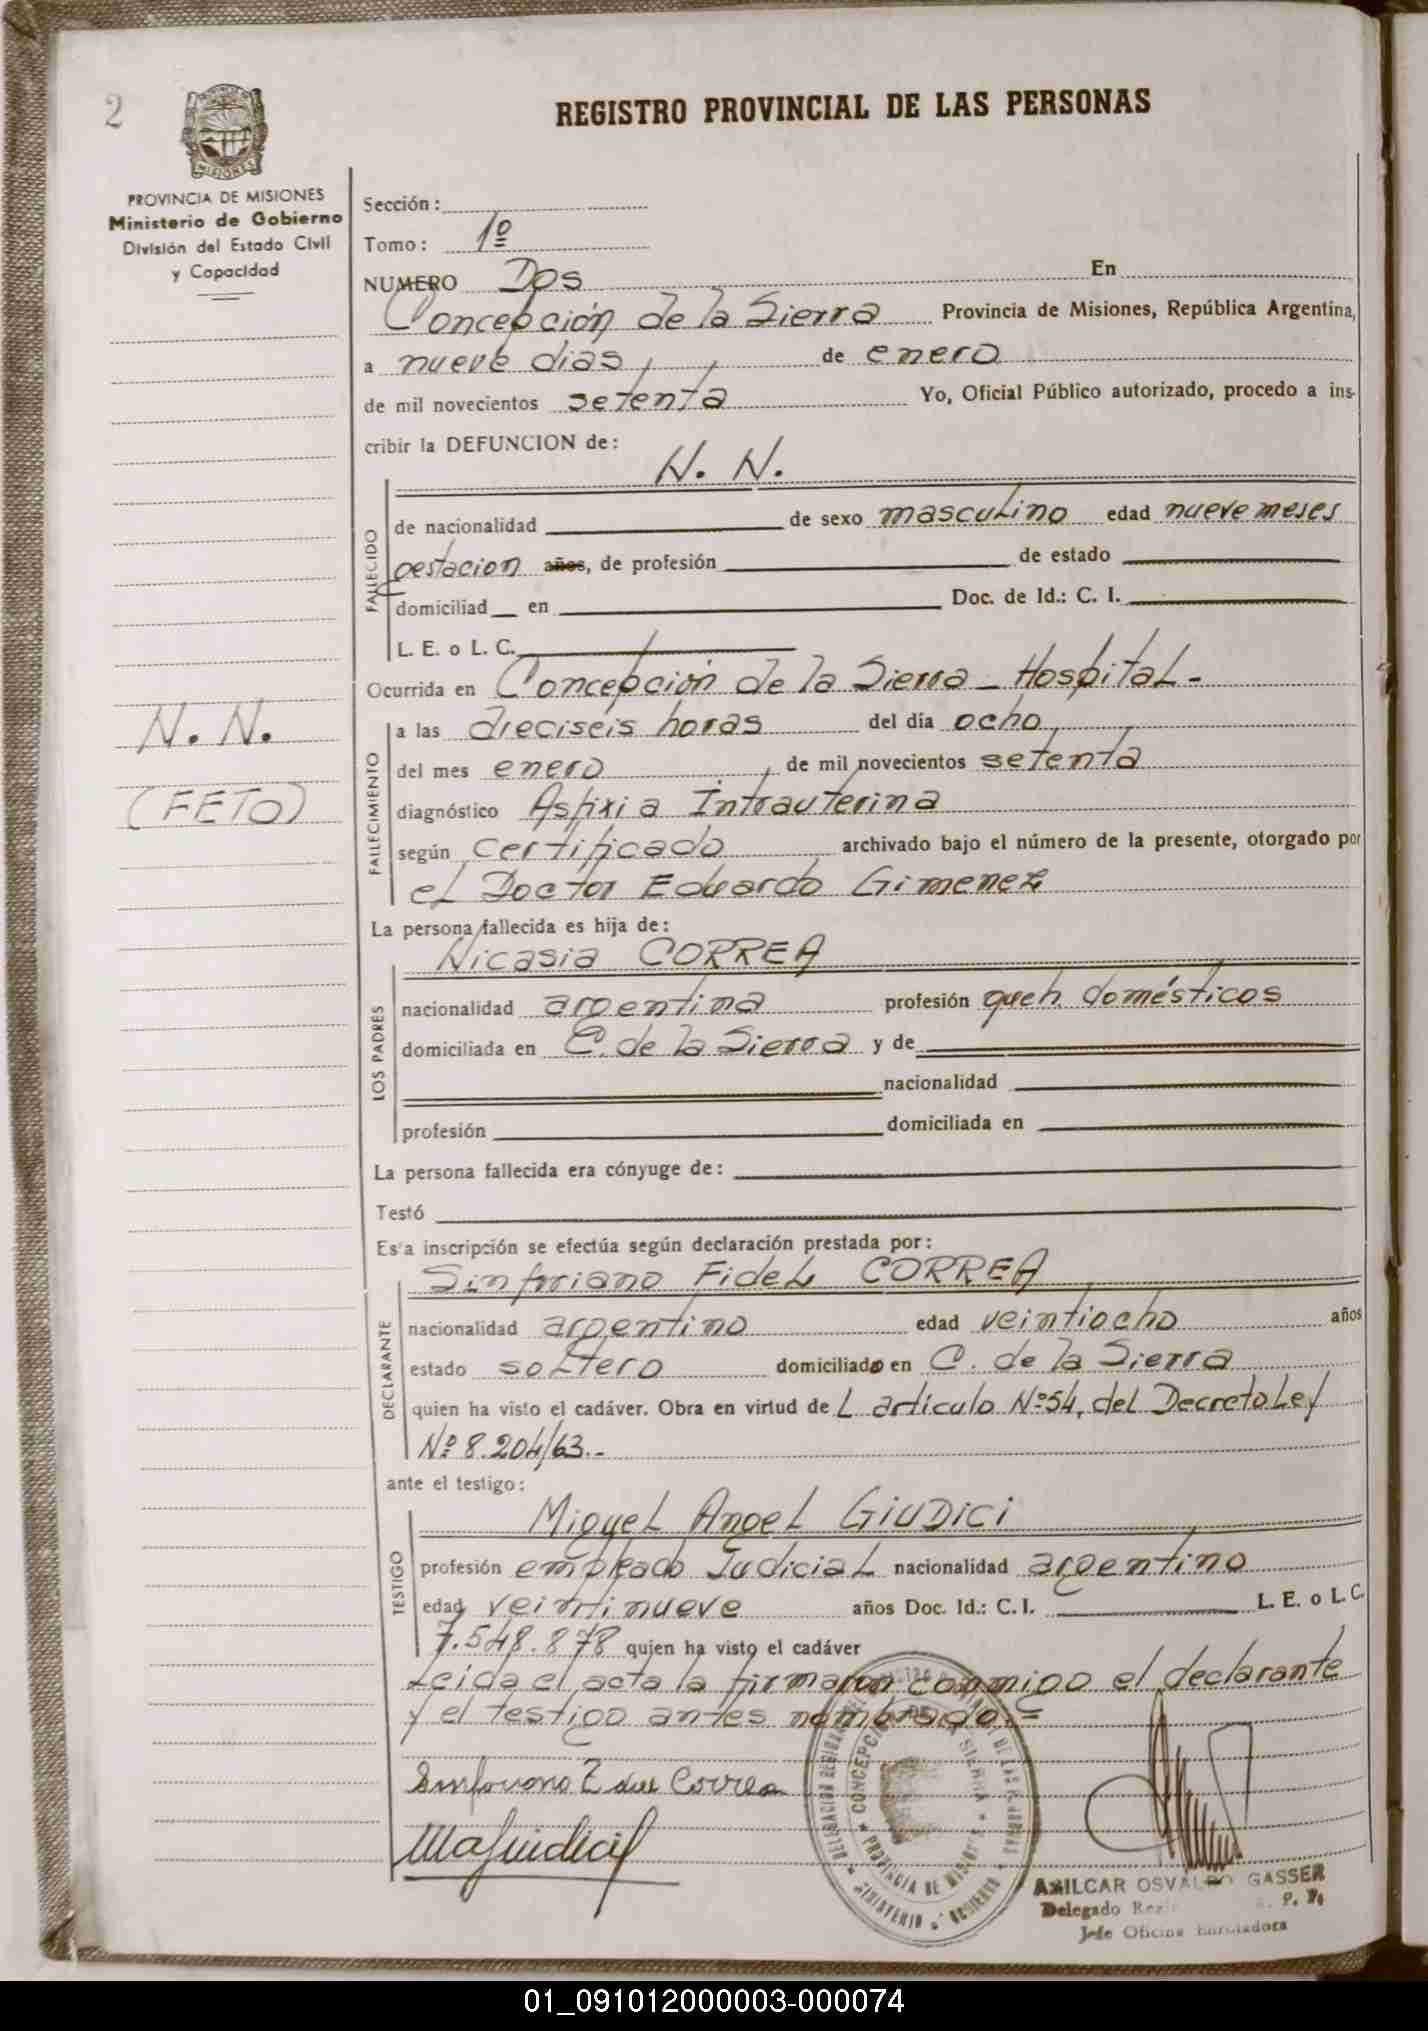 2
REGISTRO PROVINCIAL DE LAS PERSONAS
MISIONES
PROVINCIA DE MISIONES
Ministerio de Gobierno
División del Estado Civil
y Capacidad
Sección:
Tomo: 1º
NUMERO Dos En
Concepción de la Sierra Provincia de Misiones, República Argentina,
a nueve dias, de enero
de mil novecientos setenta Yo, Oficial Público autorizado, procedo a ins-
cribir la DEFUNCION de:
N. N.
FALLECIDO
de nacionalidad de sexo masculino edad nueve meses
gestacion años, de profesión de estado
domiciliad en Doc. de Id.: C. I.
L. E. o L. C.
Ocurrida en Concepción de la Sierra - Hospital -
N. N.
(FETO)
FALLECIMIENTO
a las dieciseis horas del día ocho
del mes enero, de mil novecientos setenta
diagnóstico Asfixia Intrauterina
según certificado archivado bajo el número de la presente, otorgado por
el Doctor Eduardo Gimenez
La persona fallecida es hija de:
LOS PADRES
Nicasia CORREA
nacionalidad argentina profesión queh. domésticos
domiciliada en C. de la Sierra y de
nacionalidad
profesión domiciliada en
La persona fallecida era cónyuge de:
Testó
Esta inscripción se efectúa según declaración prestada por:
DECLARANTE
Sinforiano Fidel CORREA
nacionalidad argentino edad veintiocho años
estado soltero domiciliado en C. de la Sierra
quien ha visto el cadáver. Obra en virtud de L articulo Nº 54, del Decreto Ley
Nº 8.204/63.-
ante el testigo:
TESTIGO
Miguel Angel GIUDICI
profesión empleado Judicial nacionalidad argentino
edad veintinueve años Doc. Id.: C. I. L. E. o L. C.
7.548.878 quien ha visto el cadáver
Leida el acta la firmaron conmigo el declarante
y el testigo antes nombrado.=
CONCEPCION DE LA SIERRA
PROVINCIA DE MISIONES
AMILCAR OSVALDO GASSER
Delegado R. P. P.
Jefe Oficina Enroladora
01_091012000003-000074